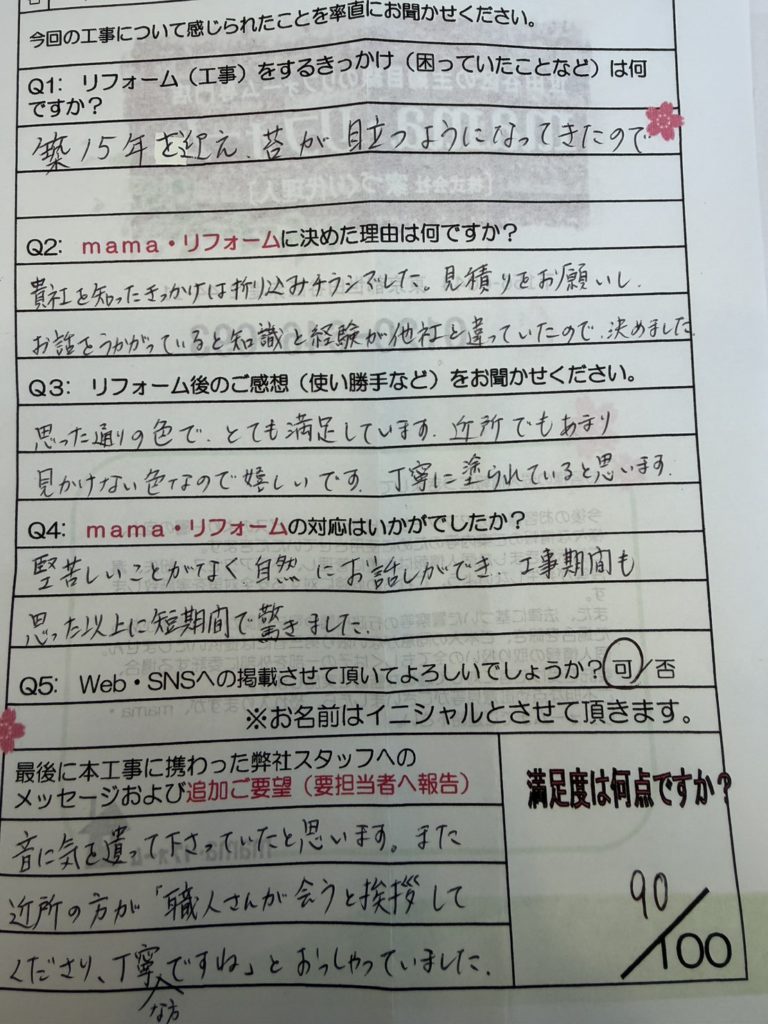 今回の工事について感じられたことを率直にお聞かせください。
Q1: リフォーム（工事）をするきっかけ（困っていたことなど）は何
ですか？
築15年を迎え、苔が目立つようになってきたので
Q2: mama・リフォームに決めた理由は何ですか？
貴社を知ったきっかけは折り込みチラシでした。見積りをお願いし、
お話をうかがっていると知識と経験が他社と違っていたので、決めました
Q3: リフォーム後のご感想（使い勝手など）をお聞かせください。
思った通りの色で、とても満足しています。近所でもあまり
見かけない色なので嬉しいです。丁寧に塗られていると思います。
Q4: mama・リフォームの対応はいかがでしたか？
堅苦しいことがなく自然にお話しができ、工事期間も
思った以上に短期間で驚きました。
Q5: Web・SNSへの掲載させて頂いてよろしいでしょうか？可/否
※お名前はイニシャルとさせて頂きます。
最後に本工事に携わった弊社スタッフへの
メッセージおよび追加ご要望（要担当者へ報告）
音に気を遣って下さっていたと思います。また
近所の方が「職人さんが会うと挨拶して
くださり、丁寧ですね」とおっしゃっていました。
な方
満足度は何点ですか？
90
/100